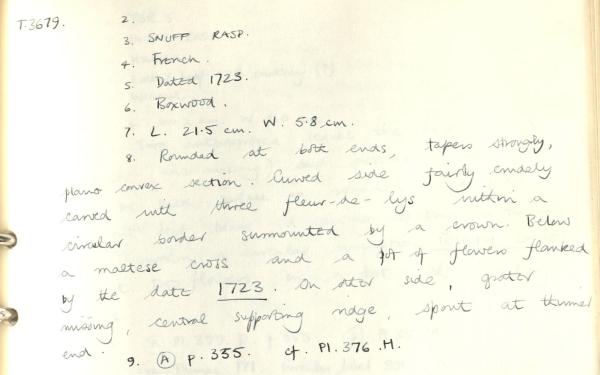 T.3679.
2.
3. SNUFF RASP.
4. French.
5. Dated 1723.
6. Boxwood.
7. L. 21.5 cm. W. 5.8 cm.
8. Rounded at both ends, tapers strongly,
plano convex section. Curved side fairly crudely
carved with three fleur-de-lys within a
circular border surmounted by a crown. Below
a maltese cross and a pot of flowers flanked
by the date 1723. On other side, grater
missing, central supporting ridge, spout at thinner
end.
9. (A) p. 335. cf. Pl. 376. H.